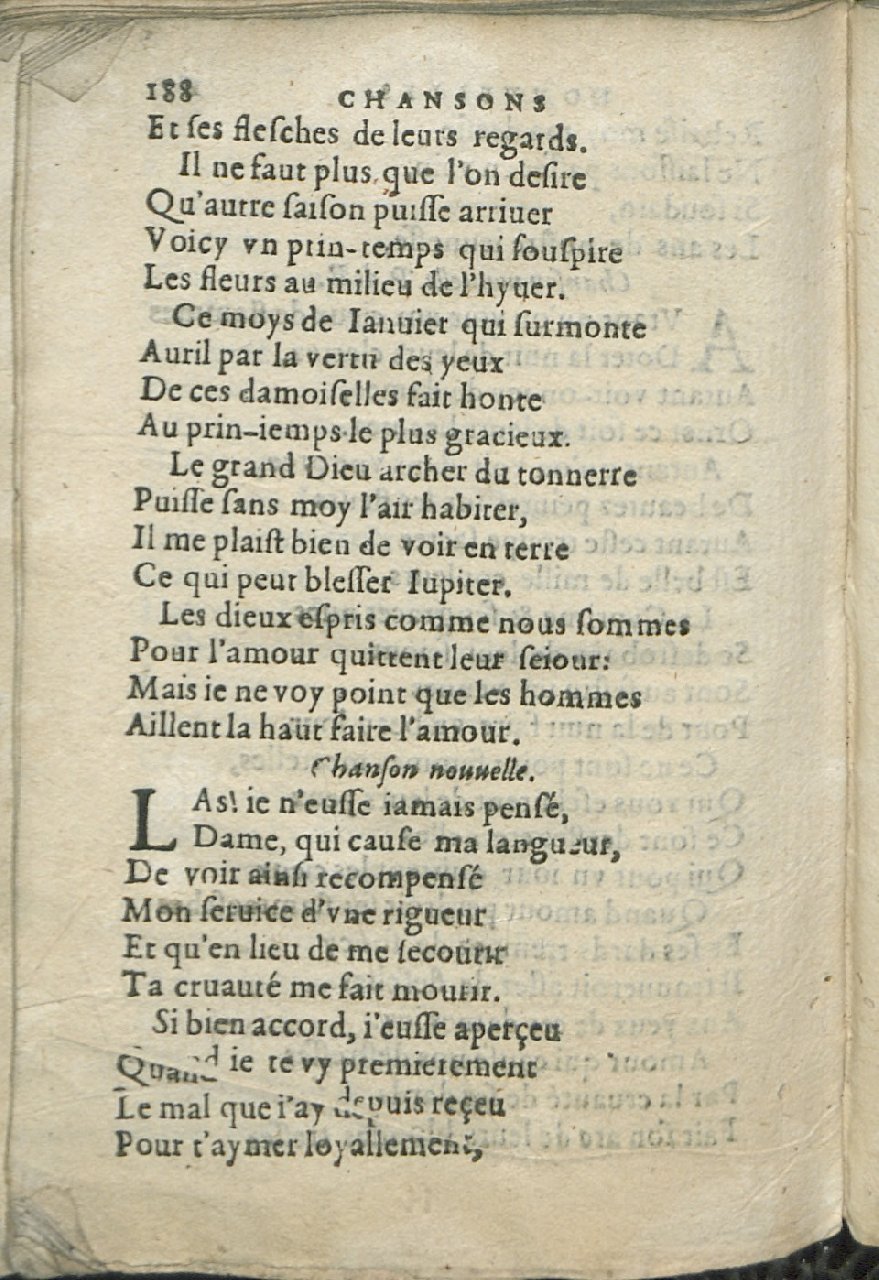 188 CHANSONS
Et ses flesches de leurs regards.
Il ne faut plus que l'on desire
Qu'autre saison puisse arriuer
Voicy vn prin-temps qui souspire
Les fleurs au milieu de l'hyuer.
Ce moys de Ianuier qui surmonte
Auril par la vertu des yeux
De ces damoiselles fait honte
Au prin-iemps le plus gracieux.
Le grand Dieu archer du tonnerre
Puisse sans moy l'air habiter,
Il me plaist bien de voir en terre
Ce qui peut blesser Iupiter.
Les dieux espris comme nous sommes
Pour l'amour quittent leur seiour:
Mais ie ne voy point que les hommes
Aillent la haut faire l'amour.
Chanson nouuelle.
LAs! ie n'eusse iamais pensé,
Dame, qui cause ma langueur,
De voir ainsi recompensé
Mon seruice d'vne rigueur
Et qu'en lieu de me secourir
Ta cruauté me fait mourir.
Si bien accord, i'eusse aperçeu
Quand ie te vy premierement
Le mal que i'ay depuis reçeu
Pour t'aymer loyallement,